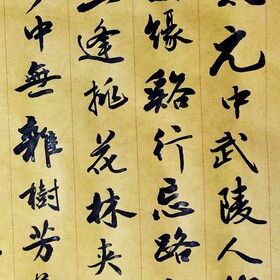 元中武陵人
緣谿行忘路
逢桃花林夾
中無雜樹芳